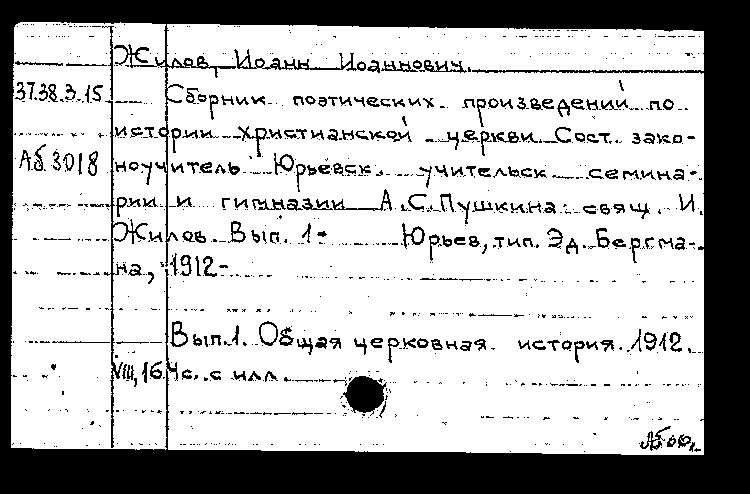 Жилов, Иоанн Иоаннович.
37.38.3.15 Сборник поэтических произведений по
истории христианской церкви Сост. зако-
Аб 3018 ноучитель Юрьевск. учительск семина-
рии и гимназии А.С.Пушкина свящ. И.
Жилов. Вып. 1- Юрьев, тип. Эд. Бергма-
на, 1912-
Вып.1. Общая церковная история. 1912.
VIII, 164с. с илл.